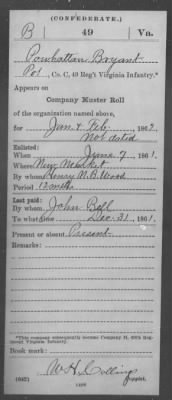 (CONFEDERATE.)
B 49 Va.
Powhattan Bryant
Pvt, Co. C, 49 Reg't Virginia Infantry.*
Appears on
Company Muster Roll
of the organization named above,
for Jan & Feb, 1862.
Not dated
Enlisted:
When June 7, 1861.
Where New Market
By whom Henry N. B. Wood
Period 12 mths
Last paid:
By whom John Bell
To what time Dec. 31, 1861.
Present or absent Present
Remarks:
*This company subsequently became Company 49th Regiment Virginia Infantry.
Book mark:
W H Collins
(642) Copyist.